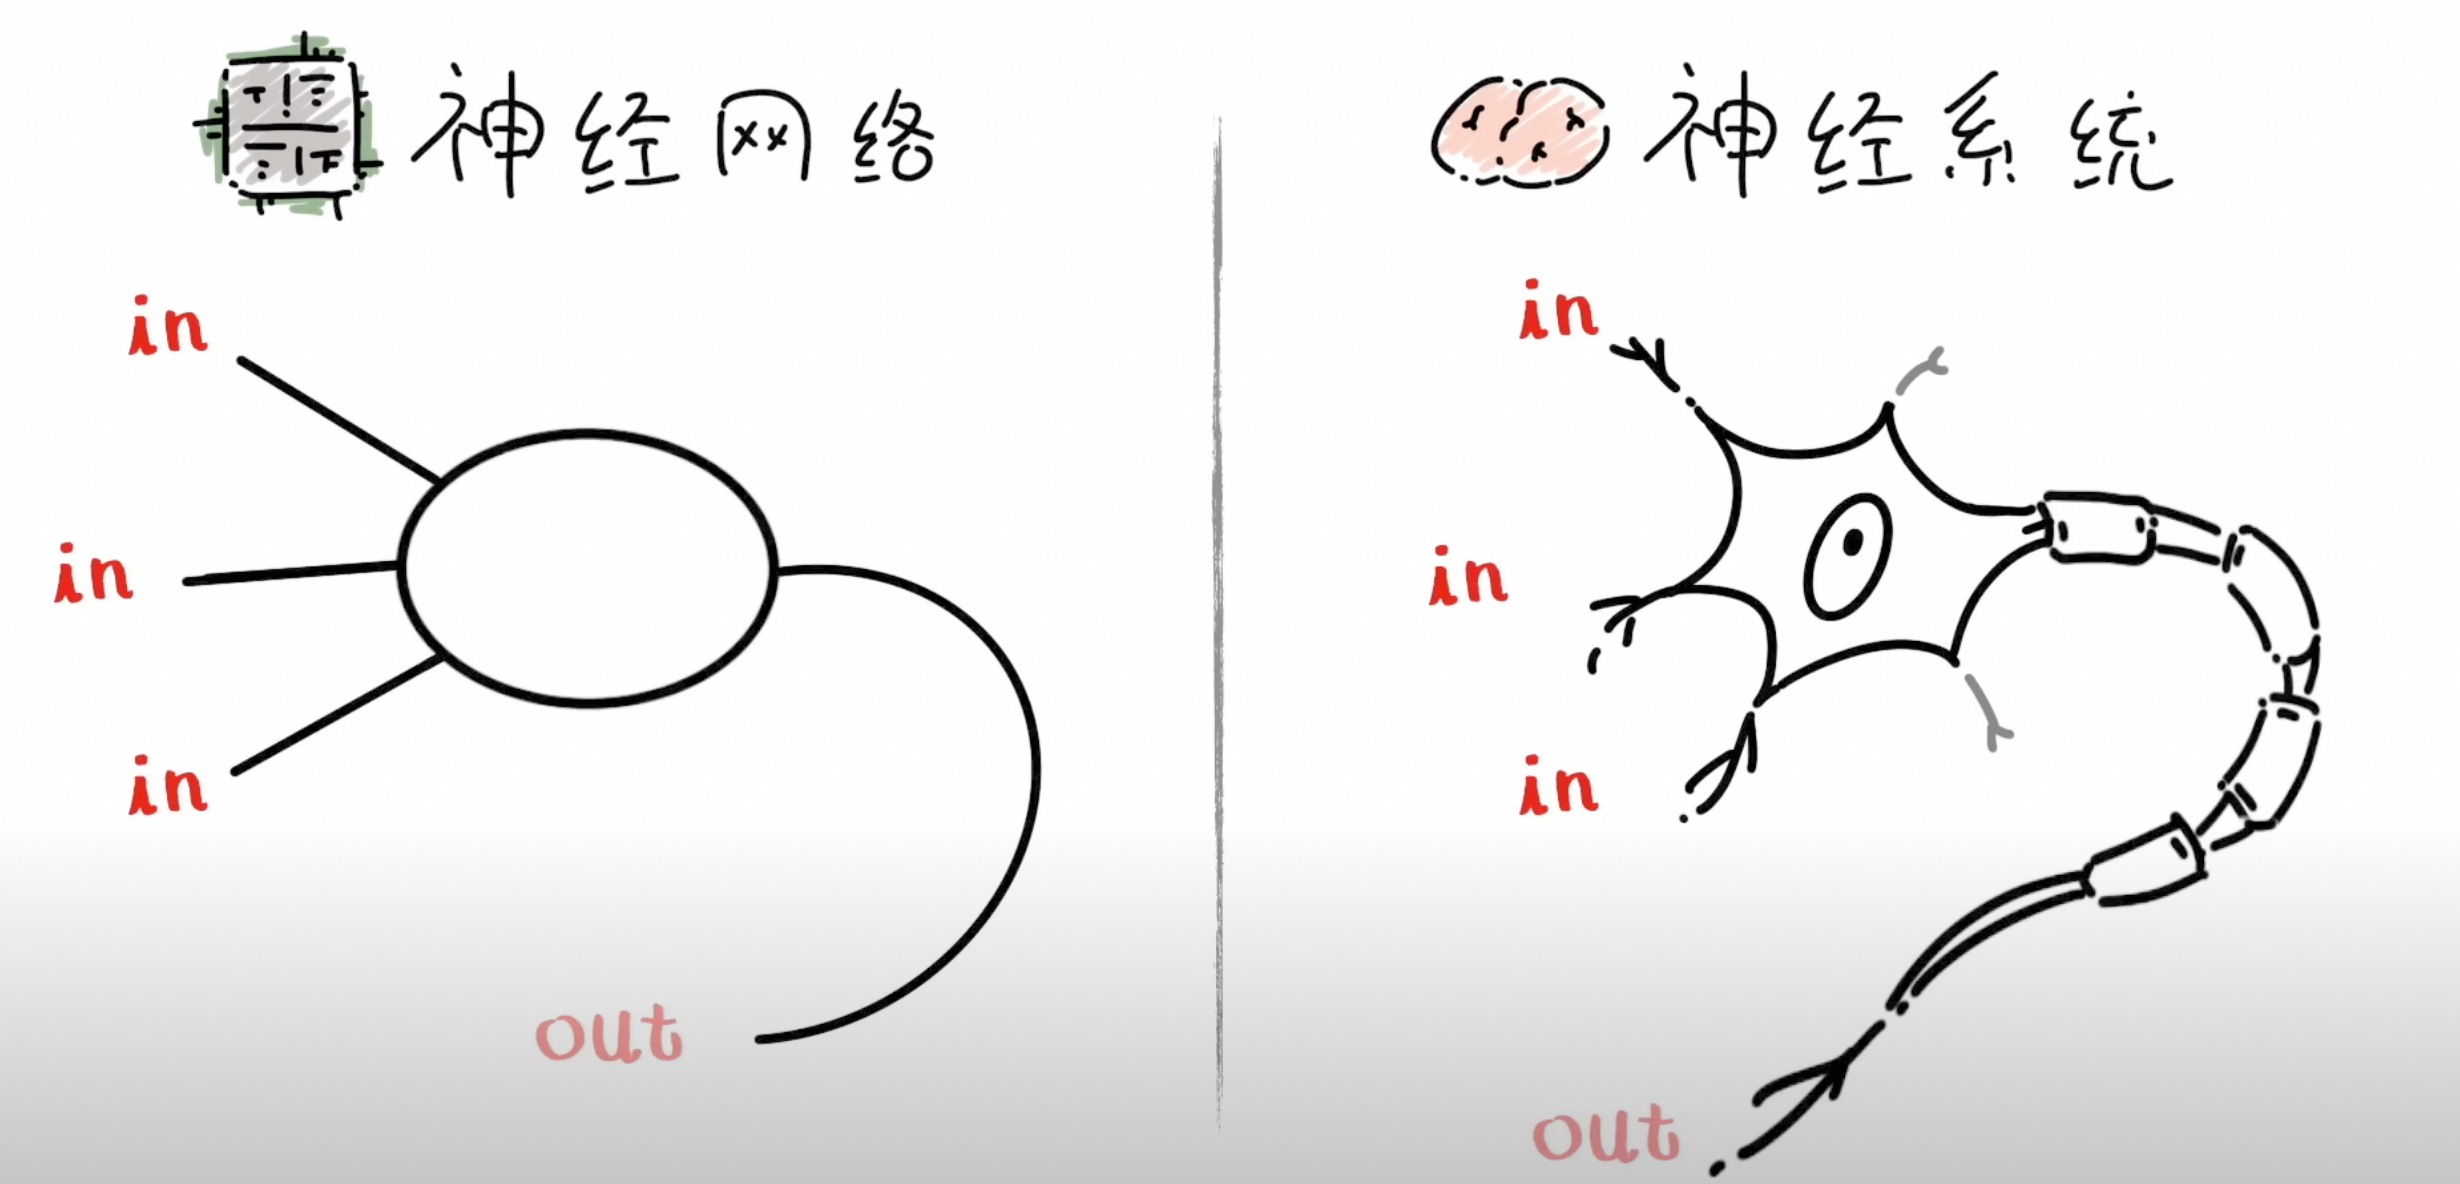 神经网络
in
in
in
out
神经系统
in
in
in
out